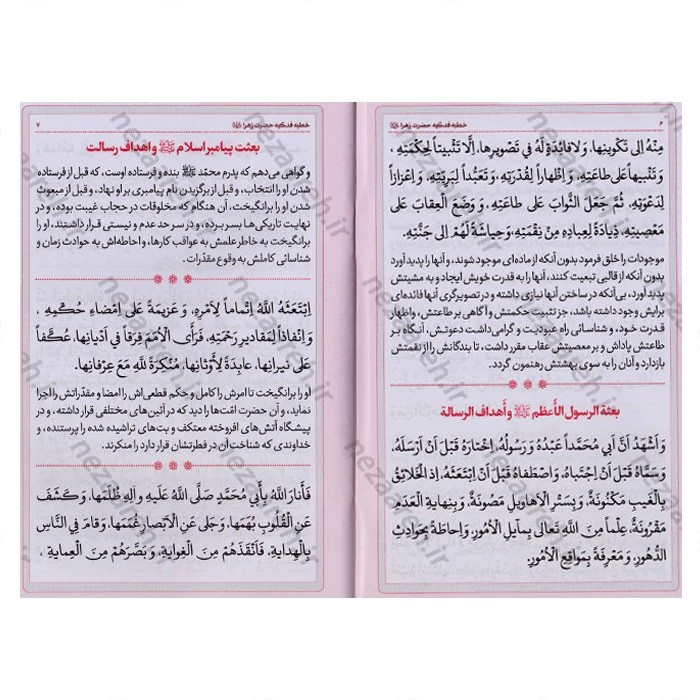 ۶ خطبه فدکیه حضرت زهرا
مِنْهُ اِلى تَكْوينِها، وَلا فائِدَةَ لَهُ في تَصْويرِها، اِلَّا تَثْبيتاً لِحِكْمَتِهِ،
وَ تَنْبيهاً عَلى طاعَتِهِ، وَ اِظْهاراً لِقُدْرَتِهِ، وَ تَعَبُّداً لِبَرِيَّتِهِ، وَ اِعْزازاً
لِدَعْوَتِهِ، ثُمَّ جَعَلَ الثَّوابَ عَلى طاعَتِهِ، وَ وَضَعَ الْعِقابَ عَلى
مَعْصِيَتِهِ، ذِيادَةً لِعِبادِهِ مِنْ نِقْمَتِهِ، وَحِياشَةً لَهُمْ اِلى جَنَّتِهِ.
موجودات را خلق فرمود بدون آنکه از ماده‌ای موجود شوند، و آنها را پدید آورد
بدون آنکه از قالبی تبعیت کنند، آنها را به قدرت خویش ایجاد و به مشیتش
پدید آورد، بی‌آنکه در ساختن آنها نیازی داشته و در تصویرگری آنها فائده‌ای
برایش وجود داشته باشد، جز تثبیت حکمتش و آگاهی بر طاعتش، و اظهار
قدرت خود، و شناسائی راه عبودیت و گرامی داشت دعوتش، آنگاه بر
طاعتش پاداش و بر معصیتش عقاب مقرر داشت، تا بندگانش را از نقمتش
بازدارد و آنان را به سوی بهشتش رهنمون گردد.
بعثة الرسول الأعظم ﷺ و أهداف الرسالة
وَ اَشْهَدُ اَنَّ اَبي مُحَمَّداً عَبْدُهُ وَ رَسُولُهُ، اِخْتارَهُ قَبْلَ اَنْ اَرْسَلَهُ،
وَ سَمَّاهُ قَبْلَ اَنْ اِجْتَباهُ، وَ اصْطَفاهُ قَبْلَ اَنْ اِبْتَعَثَهُ، اِذِ الْخَلائِقُ
بِالْغَيْبِ مَكْنُونَةٌ، وَ بِسَتْرِ الْاَهاويلِ مَصُونَةٌ، وَ بِنِهايَةِ الْعَدَمِ
مَقْرُونَةٌ، عِلْماً مِنَ اللَّهِ تَعالى بِمآيِلِ الْاُمُورِ، وَ اِحاطَةً بِحَوادِثِ
الدُّهُورِ، وَ مَعْرِفَةً بِمَواقِعِ الْاُمُورِ.
خطبه فدکیه حضرت زهرا ۷
بعثت پیامبر اسلام ﷺ و اهداف رسالت
و گواهی می‌دهم که پدرم محمّد ﷺ بنده و فرستاده اوست، که قبل از فرستاده
شدن او را انتخاب، و قبل از برگزیدن نام پیامبری بر او نهاد، و قبل از مبعوث
شدن او را برانگیخت، آن هنگام که مخلوقات در حجاب غیبت بوده، و در
نهایت تاریکی‌ها بسر برده، و در سر حد عدم و نیستی قرار داشتند، او را
برانگیخت به خاطر علمش به عواقب کارها، و احاطه‌اش به حوادث زمان و
شناسائی کاملش به وقوع مقدّرات.
اِبْتَعَثَهُ اللَّهُ اِتْماماً لِاَمْرِهِ، وَ عَزيمَةً عَلى اِمْضاءِ حُكْمِهِ،
وَ اِنْفاذاً لِمَقاديرِ رَحْمَتِهِ، فَرَأَى الْاُمَمَ فِرَقاً في اَدْيانِها، عُكَّفاً
عَلى نيرانِها، عابِدَةً لِاَوْثانِها، مُنْكِرَةً لِلَّهِ مَعَ عِرْفانِها.
او را برانگیخت تا امرش را کامل و حکم قطعی‌اش را امضا و مقدّراتش را اجرا
نماید، و آن حضرت امّت‌ها را دید که در آئین‌های مختلفی قرار داشته، و در
پیشگاه آتش‌های افروخته معتکف و بت‌های تراشیده شده را پرستنده، و
خداوندی که شناخت آن در فطرتشان قرار دارد را منکرند.
فَاَنارَ اللَّهُ بِاَبي مُحَمَّدٍ صَلَّى اللَّهُ عَلَيْهِ وَ الِهِ ظُلَمَها، وَ كَشَفَ
عَنِ الْقُلُوبِ بُهَمَها، وَ جَلى عَنِ الْاَبْصارِ غُمَمَها، وَ قامَ فِي النَّاسِ
بِالْهِدايَةِ، فَاَنْقَذَهُمْ مِنَ الْغِوايَةِ، وَ بَصَّرَهُمْ مِنَ الْعِمايَةِ،
nezaareh.ir